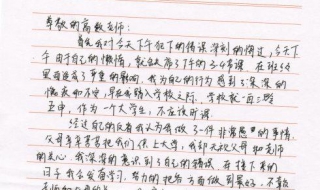 尊敬的高数老师：
首先我对今天下午犯下的错误深刻的悔过，今天下
午由于自己的懒惰，就旷了下午的3、4节课，在班级
里面造成了严重的影响，我为自己的行为感到了深深的
愧疚和不安，早在我踏入学校之际，学校就一再三强
五申，作为一个大学生，不应该旷课
经过自己的反省我认为自己做了一件非常愚蠢的事情，
父母辛辛苦苦把我们供上大学，我却无视父母和老师
的关心，我深深的意识到了自己的错误，在接下来的
日子我会发奋学习，努力的把各方面做到最好，不辜负